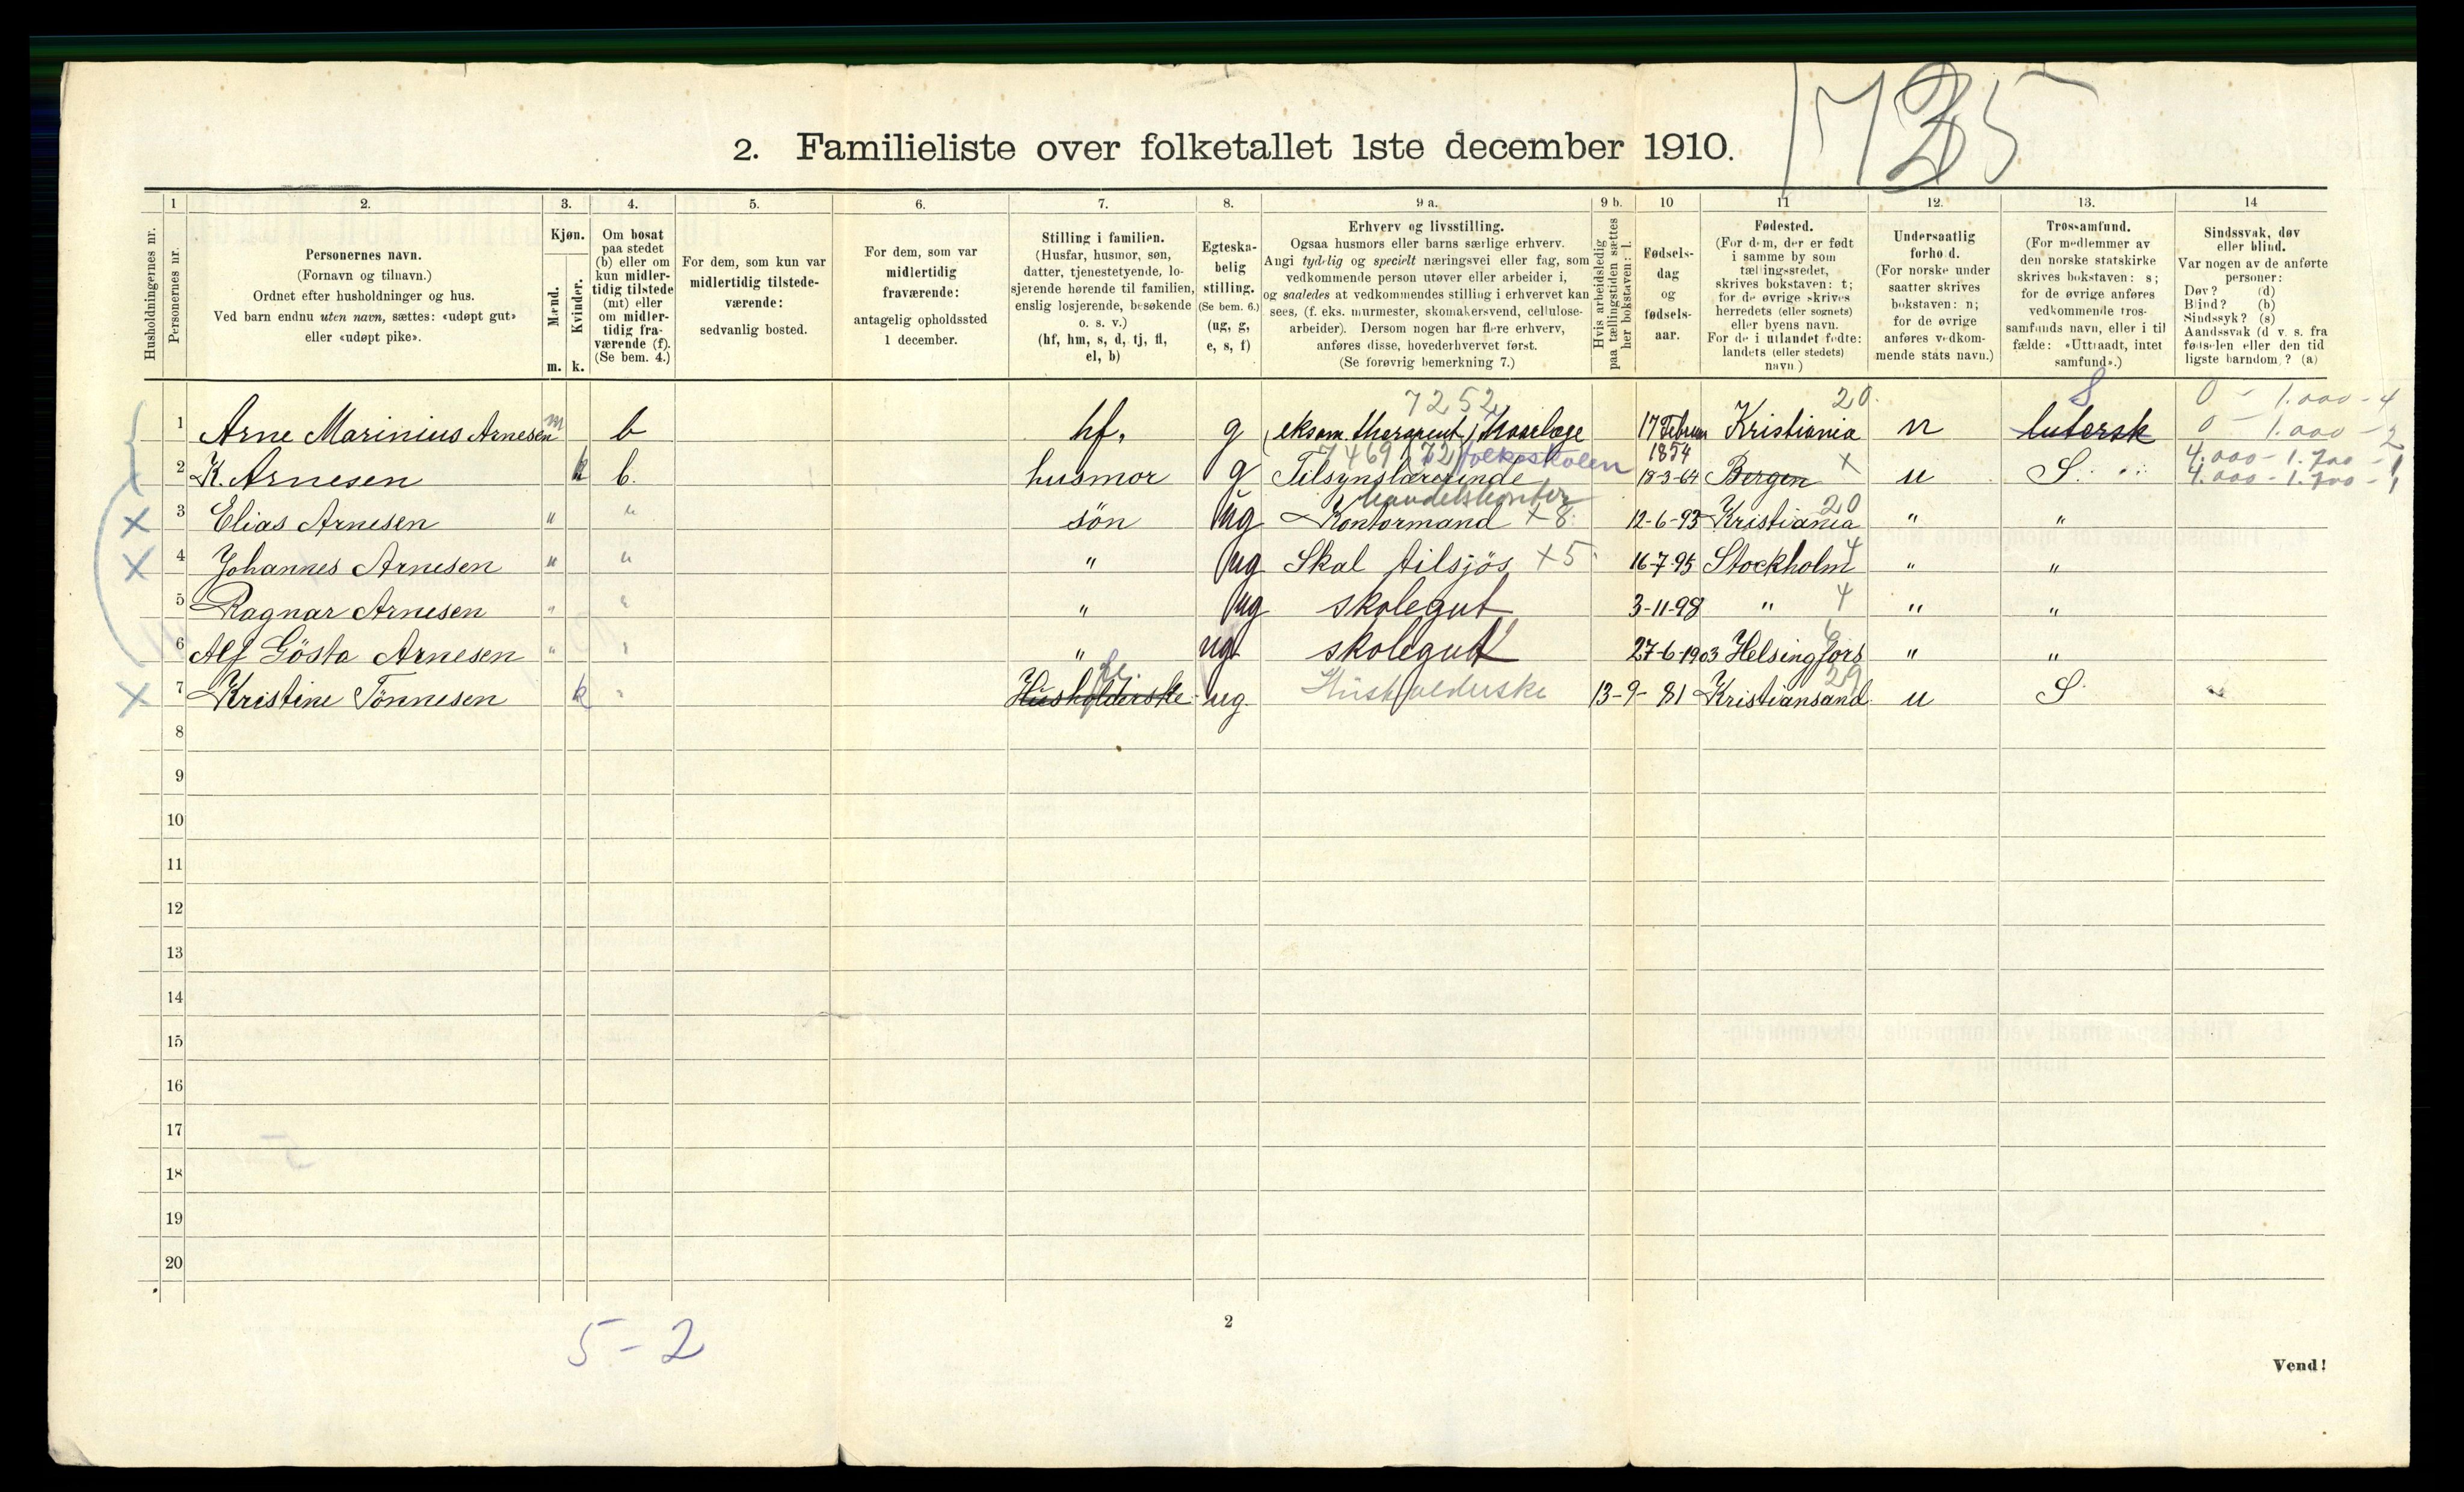 1725
2. Familieliste over folketallet 1ste december 1910.
1 2. 3. 4. 5. 6. 7. 8. 9 a. 9 b. 10 11 12. 13. 14
Husholdningernes nr.
Personernes nr.
Personernes navn.
(Fornavn og tilnavn.)
Ordnet efter husholdninger og hus.
Ved barn endnu uten navn, sættes: «udøpt gut»
eller «udøpt pike».
Kjøn.
Mænd.
Kvinder.
m. k.
Om bosat
paa stedet
(b) eller om
kun midler-
tidig tilstede
(mt) eller
om midler-
tidig fra-
værende (f).
(Se bem. 4.)
For dem, som kun var
midlertidig tilstede-
værende:
sedvanlig bosted.
For dem, som var
midlertidig
fraværende:
antagelig opholdssted
1 december.
Stilling i familien.
(Husfar, husmor, søn,
datter, tjenestetyende, lo-
sjerende hørende til familien,
enslig losjerende, besøkende
o. s. v.)
(hf, hm, s, d, tj, fl,
el, b)
Egteska-
belig
stilling.
(Se bem. 6.)
(ug, g,
e, s, f)
Erhverv og livsstilling.
Ogsaa husmors eller barns særlige erhverv.
Angi tydelig og specielt næringsvei eller fag, som
vedkommende person utøver eller arbeider i,
og saaledes at vedkommendes stilling i erhvervet kan
sees, (f. eks. murmester, skomakersvend, cellulose-
arbeider). Dersom nogen har flere erhverv,
anføres disse, hovederhvervet først.
(Se forøvrig bemerkning 7.)
Hvis arbeidsledig
paa tællingstiden sættes
her bokstaven: l.
Fødsels-
dag
og
fødsels-
aar.
Fødested.
(For dem, der er født
i samme by som
tællingsstedet,
skrives bokstaven: t;
for de øvrige skrives
herredets (eller sognets)
eller byens navn.
For de i utlandet fødte:
landets (eller stedets)
navn.)
Undersaatlig
forhold.
(For norske under
saatter skrives
bokstaven: n;
for de øvrige
anføres vedkom-
mende stats navn.)
Trossamfund.
(For medlemmer av
den norske statskirke
skrives bokstaven: s;
for de øvrige anføres
vedkommende tros-
samfunds navn, eller i til
fælde: «Uttraadt, intet
samfund».)
Sindssvak, døv
eller blind.
Var nogen av de anførte
personer:
Døv? (d)
Blind? (b)
Sindssyk? (s)
Aandssvak (d. v. s. fra
fødselen eller den tid
ligste barndom)? (a)
7252 20. S 0 - 1.000 - 4
1 Arne Marinius Arnesen m b hf. g eksam. therapeut 17 Februar 1854 Kristiania n lutersk 0 - 1.000 - 2
7469 folkeskolen 4.000 - 1.700 - 1
2 K. Arnesen k b. husmor g Tilsynslærerinde 18-3-64 Bergen x n S. 4.000 - 1.700 - 1
handelskontor 20
x 3 Elias Arnesen " " sön ug Kontormand +8. 12-6-93 Kristiania " "
x 4 Johannes Arnesen " " " ug Skal tilsjös +5 16-7-95 Stockholm 4 " "
5 Ragnar Arnesen " " " ug skolegut 3-11-98 " 4 " "
6 Alf Gösta Arnesen " " " ug. skolegut 27-6-1903 Helsingfors " "
x 7 Kristine Tönnesen k " Husholderske ug. Husholderske 13-9-81 Kristiansand 29 n S.
8
9
10
11
12
13
14
15
16
17
18
19
20
5 - 2
2
Vend!